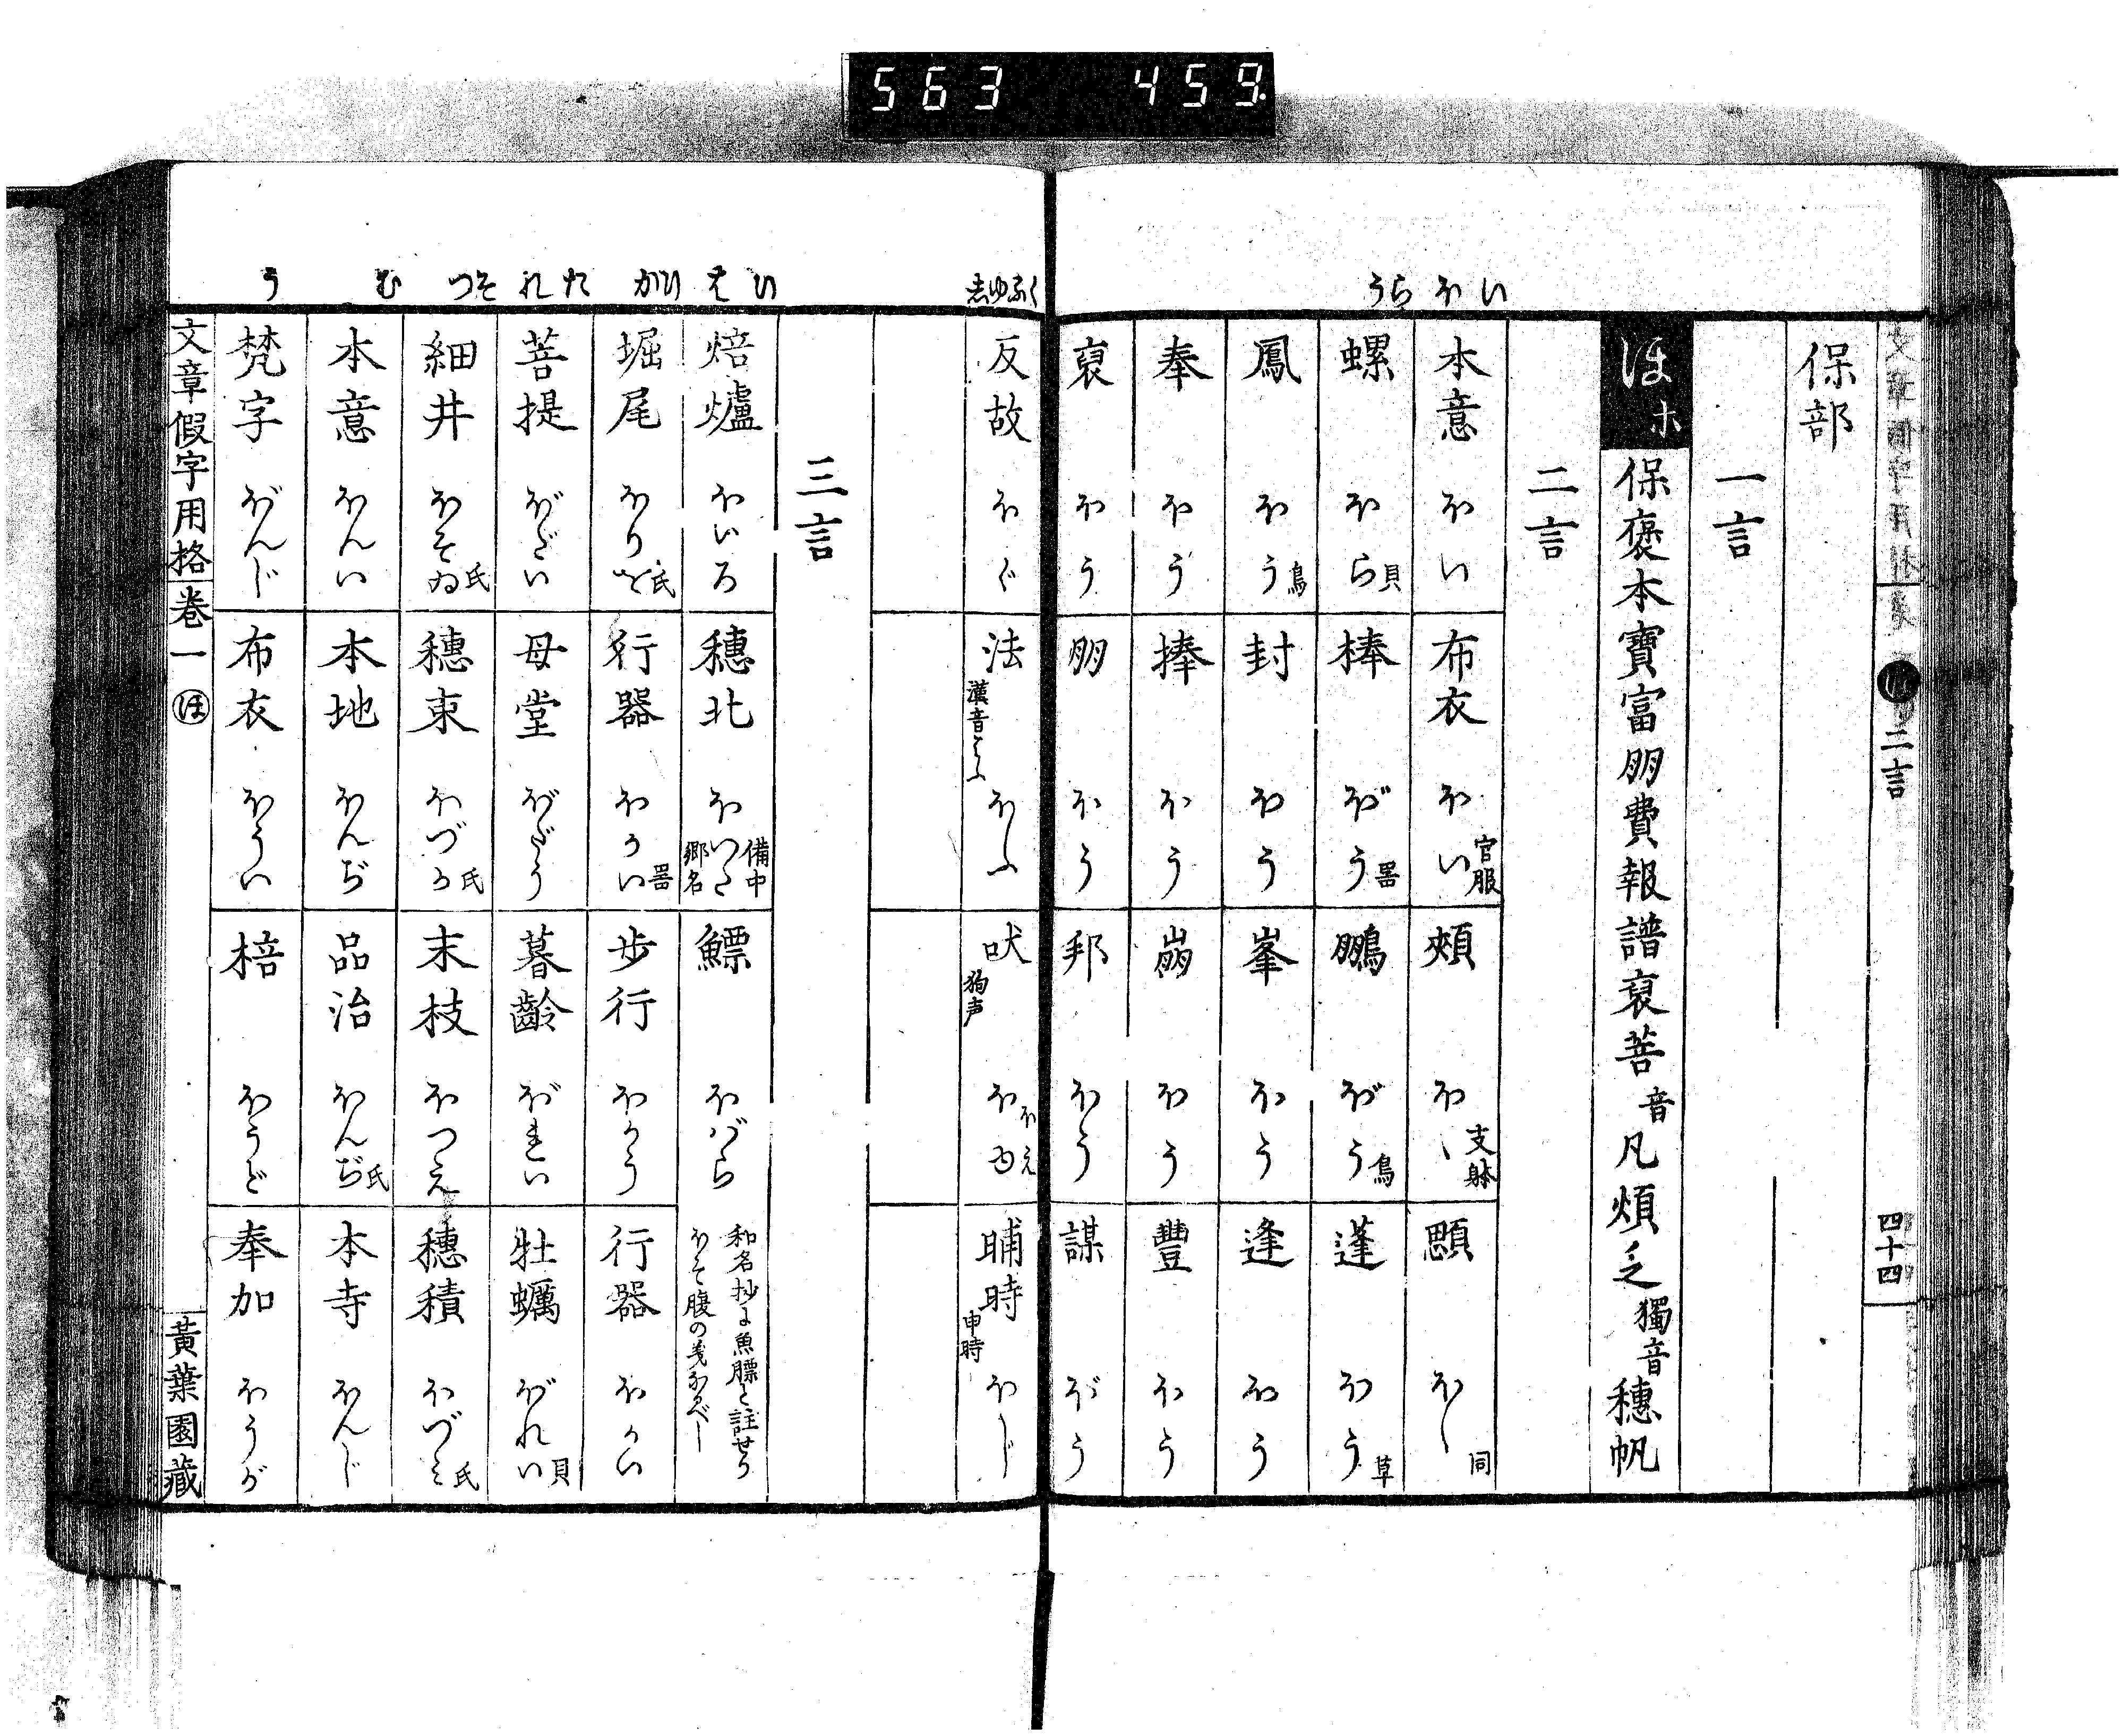 563 459
いほらう
二言
四十四
保部
一言
ほ ホ 保褒本寶富朋費報譜裒菩音凡煩乏獨音穗帆
二言
本意 ほい 布衣 ほい 官服 頰 ほゝ 支躰 顋 ほし 同
螺 ほら 貝 棒 ぼう 器 鵬 ぼう 鳥 蓬 ほう 草
鳳 ほう 鳥 封 ほう 峯 ほう 逢 ほう
奉 ほう 捧 ほう 崩 ほう 豐 ほう
裒 ほう 朋 ほう 邦 ほう 謀 ぼう
くふゆし
反故 ほぐ 法 漢音はふ ほふ 吠 狗声 ほゆ ほえ 晡時 申時 ほじ
三言
いはひかたれそつむう
焙爐 ほいろ 穗北 ほいた 備中郷名 鰾 ほばら 和名抄に魚膘と註せり ほそ腹の義なるべし
堀尾 ほりを 氏 行器 ほかい 器 歩行 ほかう 行器 ほかい
菩提 ぼだい 母堂 ぼだう 暮齡 ぼれい 牡蠣 ぼれい 貝
細井 ほそゐ 氏 穗束 ほづか 氏 末枝 ほつえ 穗積 ほづみ 氏
本意 ほんい 本地 ほんぢ 品治 ほんぢ 氏 本寺 ほんじ
梵字 ぼんじ 布衣 ほうい 棓 ほうど 奉加 ほうが
文章假字用格 卷一 ほ 黃葉園藏